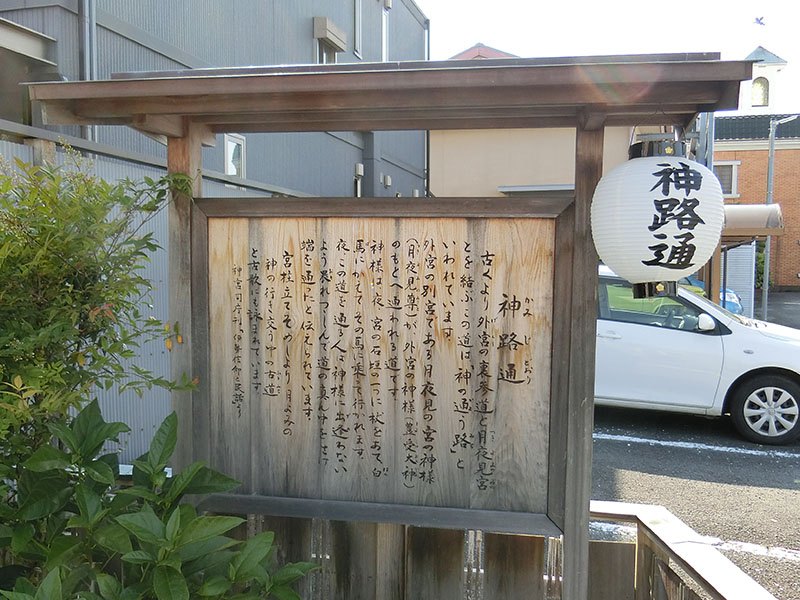 神路通
かみじどおり
古くより外宮の裏参道と月夜見宮
とを結ぶこの道は「神の通う路」と
いわれています。
外宮の別宮である月夜見の宮の神様
(月夜見尊)が、外宮の神様(豊受大神)
のもとへ通われる道です。
神様は、夜、宮の石垣の一つに杖をあて、白
馬にかえてその馬に乗って行かれます。
夜、この道を通る人は神様に出逢わない
よう畏れつつしんで道の真ん中をさけ
端を通ったと伝えられています。
宮柱立てそめしより月よみの
神の行き交う中の古道
と古歌にも詠まれています。
神路通